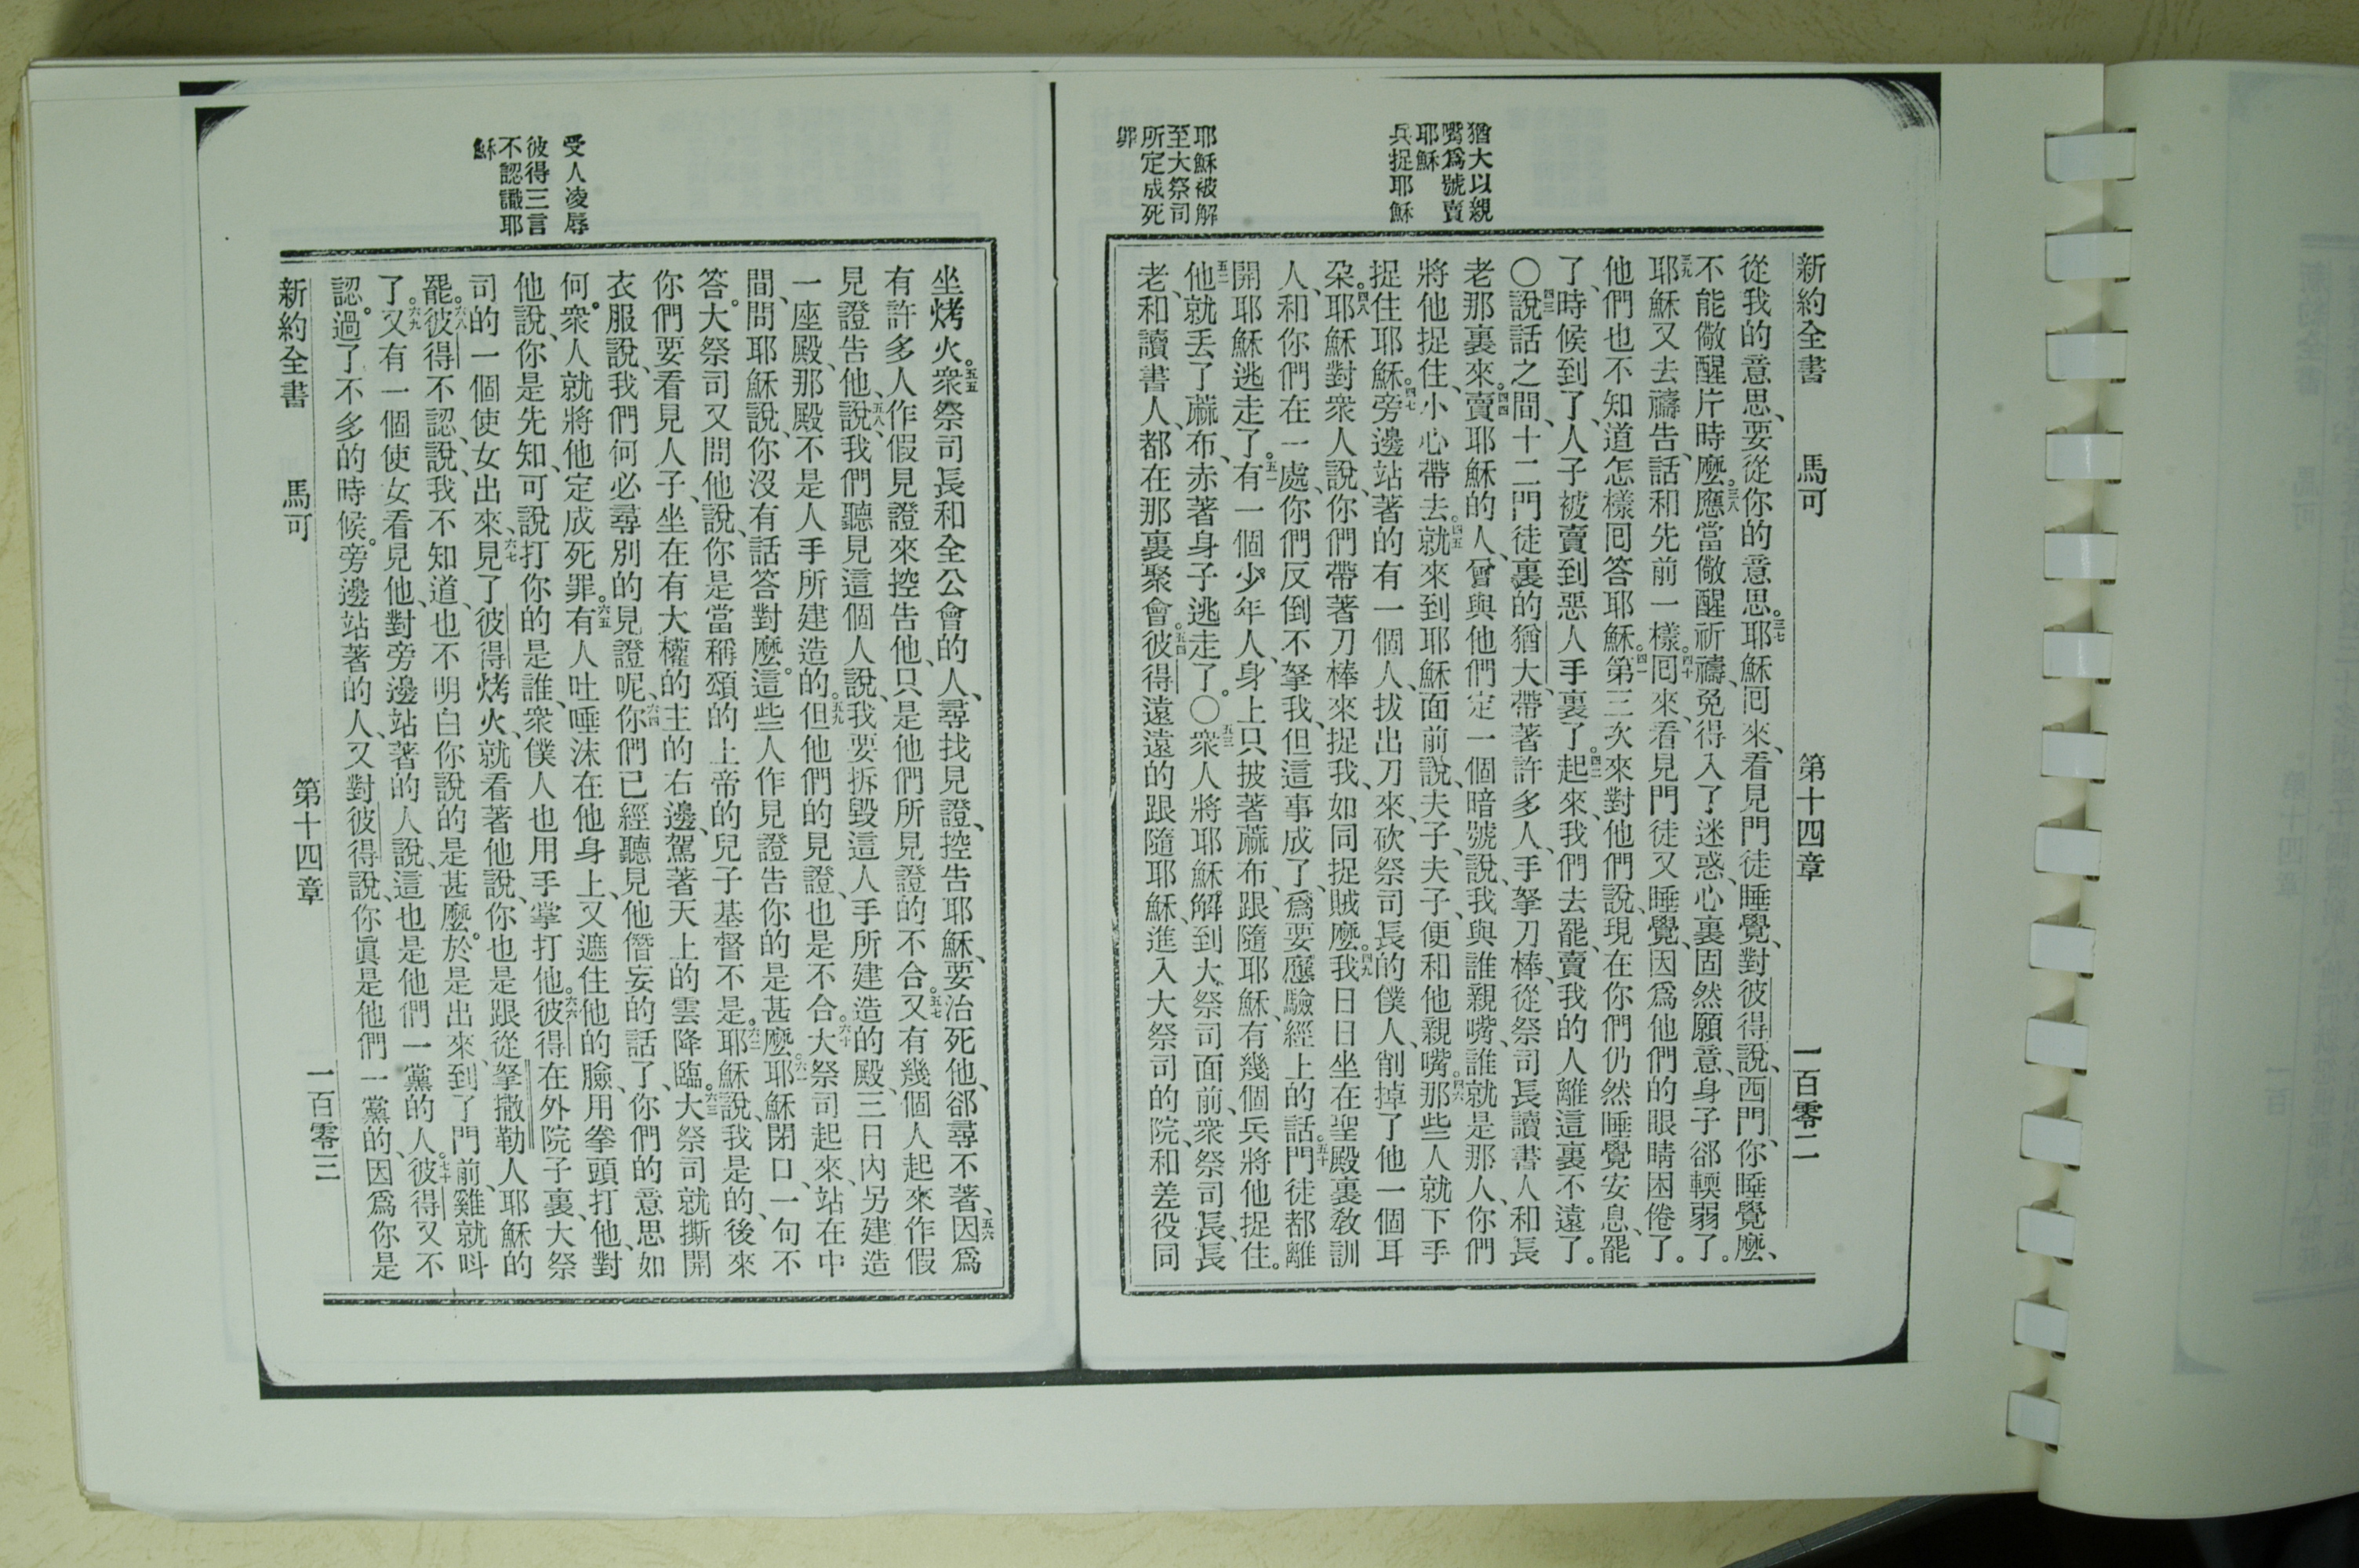 猶大以親
嘴爲號賣
耶穌
兵捉耶穌
耶穌被解
至大祭司
所定成死
罪
新約全書 馬可 第十四章 一百零二
從我的意思、要從你的意思。三七耶穌囘來、看見門徒睡覺、對彼得說、西門、你睡覺麼、
不能儆醒片時麼。三八應當儆醒祈禱、免得入了迷惑、心裏固然願意、身子郤輭弱了。
三九耶穌又去禱告、話和先前一樣。四十囘來、看見門徒又睡覺、因爲他們的眼睛困倦了。
他們也不知道怎樣囘答耶穌。四一第三次來對他們說、現在你們仍然睡覺安息、罷
了、時候到了、人子被賣到惡人手裏了。四二起來、我們去罷、賣我的人離這裏不遠了。
〇四三說話之間、十二門徒裏的猶大、帶著許多人、手拏刀棒、從祭司長讀書人和長
老那裏來。四四賣耶穌的人、曾與他們定一個暗號說、我與誰親嘴、誰就是那人、你們
將他捉住、小心帶去。四五就來到耶穌面前說、夫子、夫子、便和他親嘴。四六那些人就下手
捉住耶穌。四七旁邊站著的有一個人、拔出刀來、砍祭司長的僕人、削掉了他一個耳
朶。四八耶穌對衆人說、你們帶著刀棒來捉我、如同捉賊麼。四九我日日坐在聖殿裏敎訓
人、和你們在一處、你們反倒不拏我、但這事成了、爲要應驗經上的話。五十門徒都離
開耶穌逃走了。五一有一個少年人、身上只披著蔴布、跟隨耶穌、有幾個兵將他捉住。
五二他就丟了蔴布、赤著身子逃走了。〇五三衆人將耶穌解到大祭司面前、衆祭司長、長
老、和讀書人、都在那裏聚會。五四彼得遠遠的跟隨耶穌、進入大祭司的院、和差役同
受人凌辱
彼得三言
不認識耶
穌
坐烤火。五五衆祭司長和全公會的人、尋找見證、控告耶穌、要治死他、郤尋不著、五六因爲
有許多人作假見證來控告他、只是他們所見證的不合。五七又有幾個人起來作假
見證告他、說、五八我們聽見這個人說、我要拆毀這人手所建造的殿、三日內另建造
一座殿、那殿不是人手所建造的。五九但他們的見證、也是不合。六十大祭司起來、站在中
間、問耶穌說、你沒有話答對麼。這些人作見證告你的是甚麼。六一耶穌閉口、一句不
答。大祭司又問他說、你是當稱頌的上帝的兒子基督不是。六二耶穌說、我是的、後來
你們要看見人子、坐在有大權的主的右邊、駕著天上的雲降臨。六三大祭司就撕開
衣服說、我們何必尋別的見證呢、六四你們已經聽見他僭妄的話了、你們的意思如
何。衆人就將他定成死罪。六五有人吐唾沫在他身上、又遮住他的臉、用拳頭打他、對
他說、你是先知、可說打你的是誰、衆僕人也用手掌打他。六六彼得在外院子裏、大祭
司的一個使女出來、六七見了彼得烤火、就看著他說、你也是跟從拏撒勒人耶穌的
罷。六八彼得不認、說、我不知道、也不明白你說的是甚麼。於是出來、到了門前、雞就呌
了。六九又有一個使女看見他、對旁邊站著的人說、這也是他們一黨的人。七十彼得又不
認。過了不多的時候。旁邊站著的人、又對彼得說、你眞是他們一黨的、因爲你是
新約全書 馬可 第十四章 一百零三